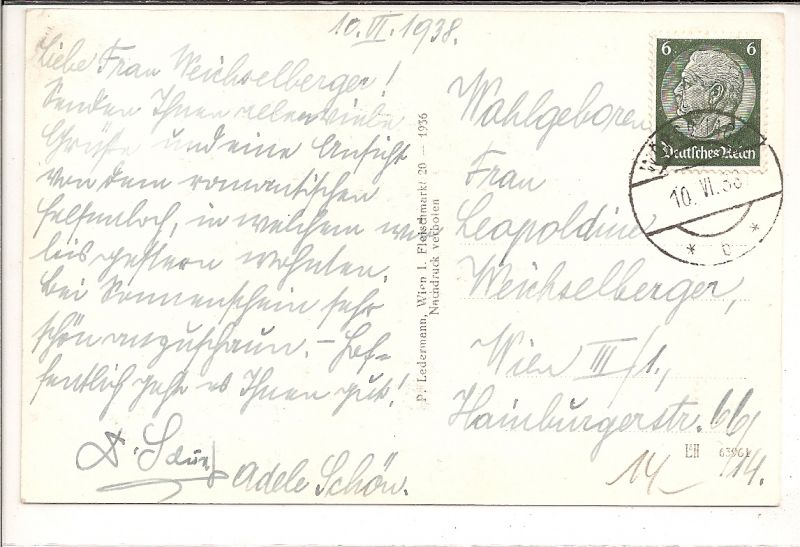 10.VI.1938.
Liebe Frau Weichselberger!
Senden Ihnen allen viele
Grüße und eine Ansicht
von dem romantischen
Felsenloch, in welchem wir
bis gestern wohnten.
Bei Sonnenschein sehr
schön anzuschaun. – Hof-
fentlich geht es Ihnen gut!
Adele Schön.
P. Ledermann, Wien I. Fleischmarkt 20 — 1936
Nachdruck verboten
6 6
Deutsches Reich
10. VI. 38
* b *
Wohlgeboren
Frau
Leopoldine
Weichselberger,
Wien III/1.,
Hainburgerstr. 66/
14.
LII 63961
14